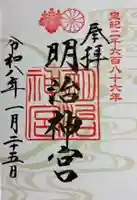 皇紀二千六百八十六年
登拝
明治神宮
令和八年一月二十五日